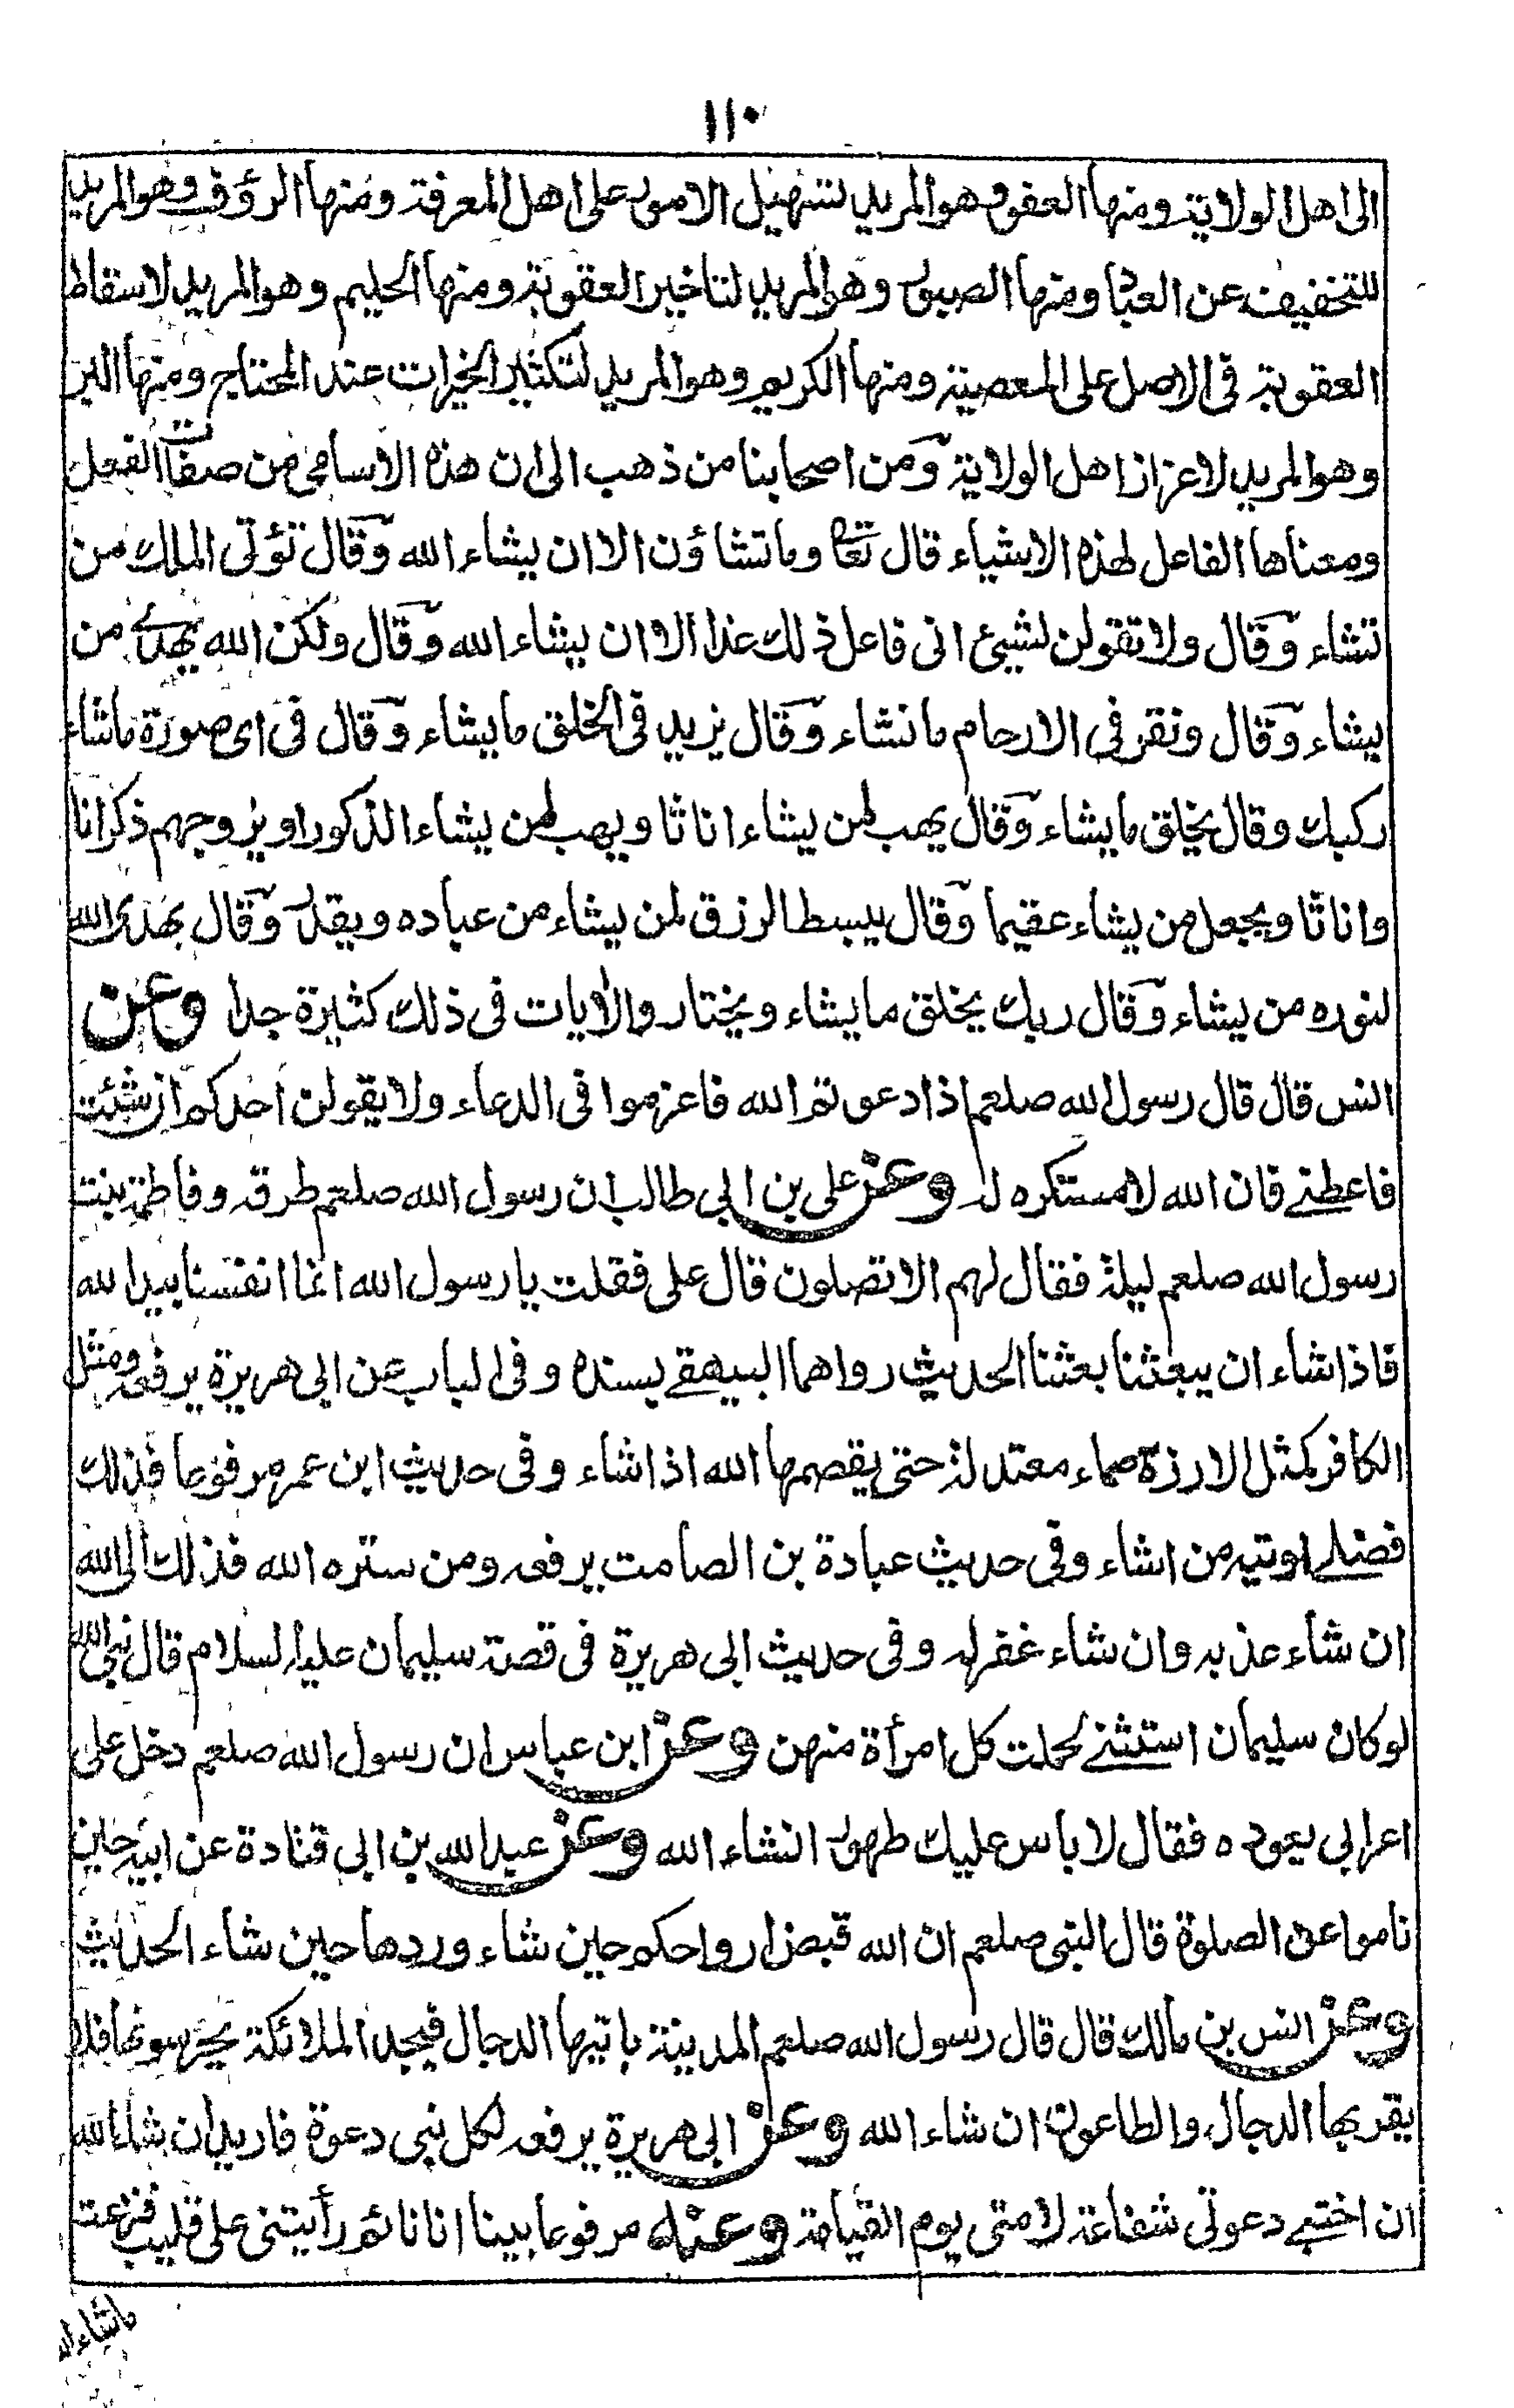 ١١٠
الى اهل الولاية ومنها العفو وهو المريد لتسهيل الامور على اهل المعرفة ومنها الرؤف وهو المريد
للتخفيف عن العباد ومنها الصبور وهو المريد لتاخير العقوبة ومنها الحليم وهو المريد لاسقاط
العقوبة فى الاصل على المعصية ومنها الكريم وهو المريد لتكثير الخيرات عند المحتاج ومنها البر
وهو المريد لاعزاز اهل الولاية ومن اصحابنا من ذهب الى ان هذه الاسامى من صفات الفعل
ومعناها الفاعل لهذه الاشياء قال تعا وما تشاؤن الا ان يشاء الله وقال تؤتى الملك من
تشاء وقال ولا تقولن لشيئ انى فاعل ذلك غدا الا ان يشاء الله وقال ولكن الله يهدے من
يشاء وقال ونقر فى الارحام ما نشاء وقال يزيد فى الخلق ما يشاء وقال فى اى صورة ما شاء
ركبك وقال يخلق ما يشاء وقال يهب لمن يشاء اناثا ويهب لمن يشاء الذكور او يزوجهم ذكرانا
واناثا ويجعل من يشاء عقيما وقال يبسط الرزق لمن يشاء من عباده ويقدر وقال يهدى الله
لنوره من يشاء وقال ربك يخلق ما يشاء ويختار والايات فى ذلك كثيرة جدا وعن
انس قال قال رسول الله صلعم اذا دعوتم الله فاعزموا فى الدعاء ولا يقولن احدكم ان شئت
فاعطنے فان الله لا مستكره له وعن على بن ابى طالب ان رسول الله صلعم طرقه وفاطمة بنت
رسول الله صلعم ليلة فقال لهم الا تصلون قال على فقلت يا رسول الله انما انفسنا بيد الله
فاذا شاء ان يبعثنا بعثنا الحديث رواهما البيهقے بسنده وفى الباب عن ابى هريرة يرفعه ومثل
الكافر كمثل الارزة صماء معتدلة حتى يقصمها الله اذا شاء وفى حديث ابن عمر مرفوعا فذلك
فضلے اوتيه من اشاء وفى حديث عبادة بن الصامت يرفعه ومن ستره الله فذلك الى الله
ان شاء عذبه وان شاء غفر له وفى حديث ابى هريرة فى قصة سليمان عليه السلام قال نبى الله
لو كان سليمان استثنے لحملت كل امرأة منهن وعن ابن عباس ان رسول الله صلعم دخل على
اعرابى يعوده فقال لا باس عليك طهور انشاء الله وعن عبد الله بن ابى قتادة عن ابيه حين
ناموا عن الصلوة قال النبى صلعم ان الله قبض ارواحكم حين شاء وردها حين شاء الحديث
وعن انس بن مالك قال قال رسول الله صلعم المدينة ياتيها الدجال فيجد الملائكة يحرسونها فلا
يقربها الدجال والطاعون ان شاء الله وعن ابى هريرة يرفعه لكل نبى دعوة فاريد ان شاء الله
ان اختبے دعوتى شفاعة لامتى يوم القيامة وعنه مرفوعا بينا انا نائم رأيتنى على قليب فنزعت
ما شاء الله